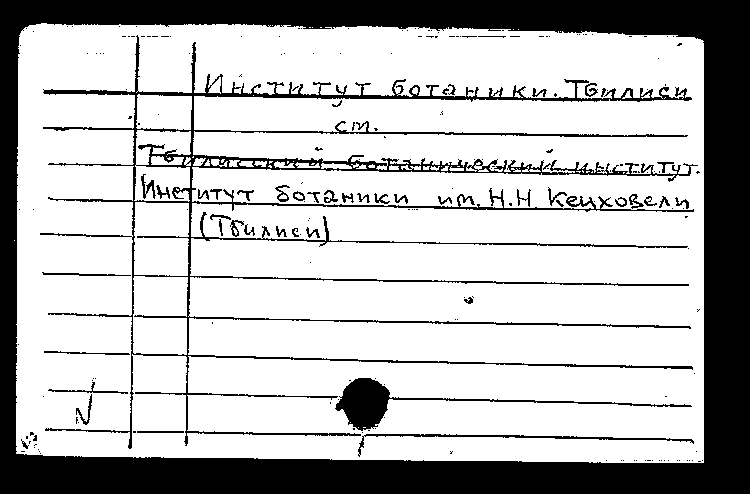 Институт ботаники. Тбилиси
см.
Тбилисский ботанический институт.
Институт ботаники им. Н.Н. Кецховели
(Тбилиси)